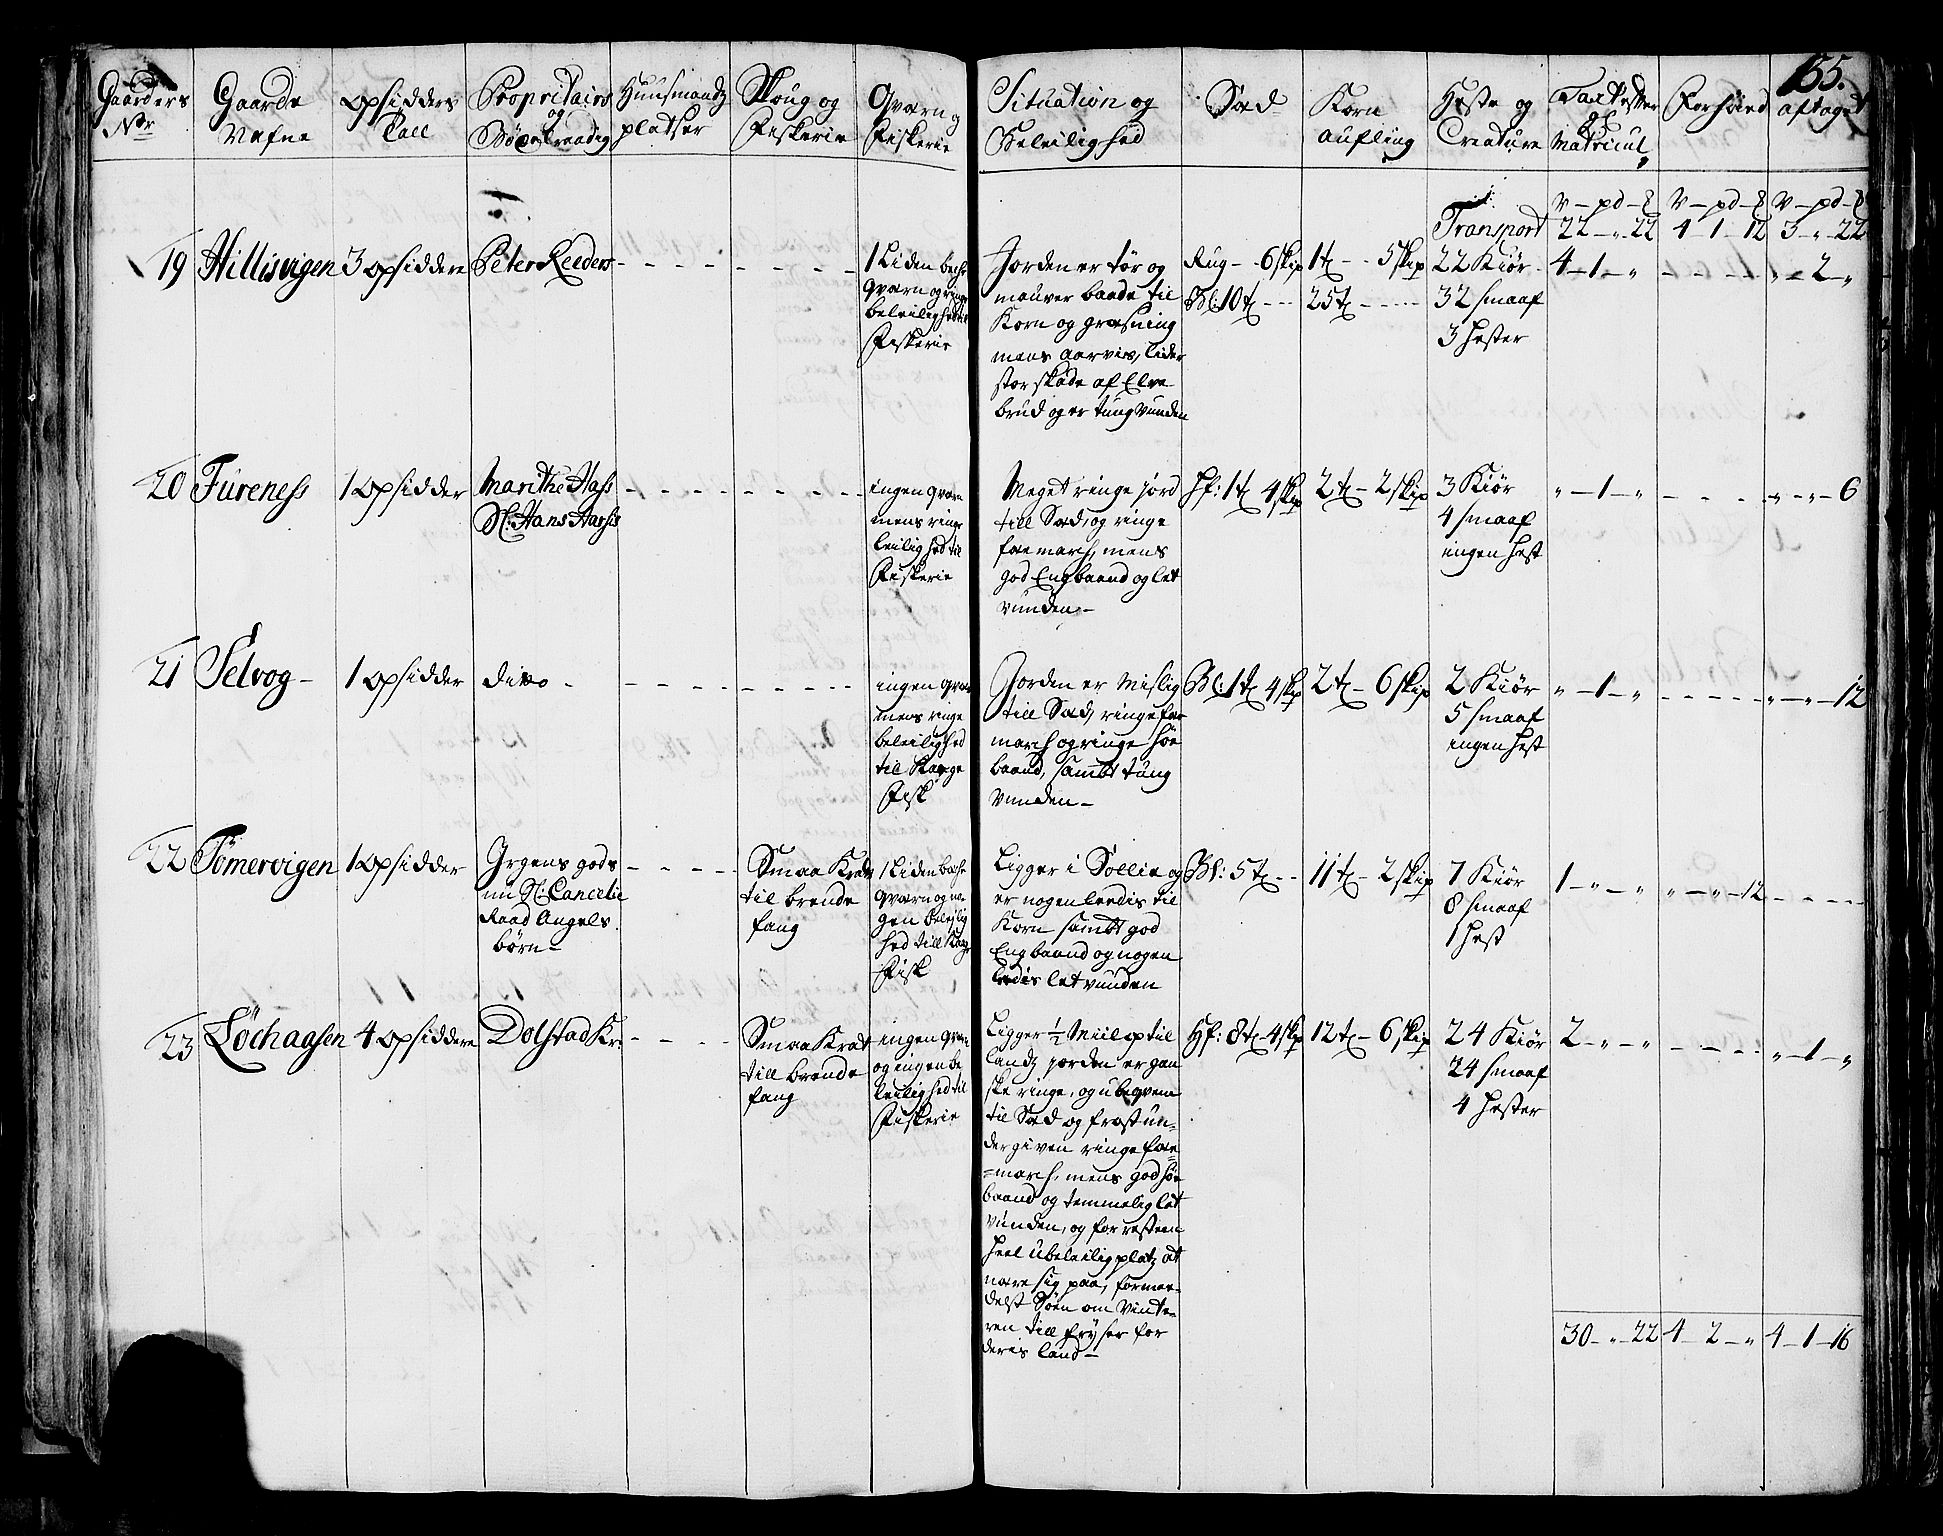 155.
Gaarders Nr
Gaarde Nafne
Opsidders Tall
Proprietairs og Böxelraadig
Huusmandz pladser
Skoug og Fiskerie
Qvarn og Fiskerie
Situation og Beleilighed
Sæd
Korn aufling
Heste og Creature
Taxt efter Matricul
Forhöied
aftaget
V — pd — V — pd — V — pd —
Transport 22 — „ — 22 4 — 1 — 12 3 — „ — 22
19 Hillisvigen 3 opsiddere Peter Reeders
1 Liden bech
qvarn og ringe
beleilighed til
Fiskerie
Jorden er tör og
mauver baade til
Korn og græsning
mens aarvis, lider
stor skade af Elve
brud og er tungvunden
Rug - - 6 skip
Bl: 10 t
1 t - - 5 skip
25 t
22 Kiör
32 smaaf
3 hester
4 — 1 — „
„ — 2 — „
20 Fureness 1 opsidder Marithe Hass
Sl: Hans Hassis
ingen qvarn
mens ringe
leilighed til
Fiskerie
Meget ringe jord
till Sæd, og ringe
foemarch, mens
god Engbaand og let
vunden —
Hf: 1 t 4 skip
2 t — 2 skip
3 Kiör
4 smaaf
ingen hest
„ — 1 — „
„ — „ — 6
21 Selvog — 1 opsidder dito
ingen qvarn
mens ringe
beleilighed
til Kaage
Fisk
Jorden er Mislig
till Sæd, ringe foe
march og ringe höe
baand, sambt tung
vunden —
Bl: 1 t 4 skip
2 t — 6 skip
2 Kiör
5 smaaf
ingen hest
„ — 1 — „
„ — „ — 12
22 Tömervigen 1 opsidder Irgens gods
nu Sl: Cancelie
Raad Angels
börn —
Smaa Krat
til brende
fang
1 Liden bech
qvarn og in-
gen beleilig
hed till Kaage
Fisk
Ligger i Sollie og
er nogenledis til
Korn sambt god
Engbaand og nogen
ledis let vunden
Bl: 5 t
11 t — 2 skip
7 Kiör
8 smaaf
1 hest
1 — „ — „
„ — „ — 12
23 Löchaasen 4 opsiddere Dolstad Kr:
Smaa Krat
till brende
fang
ingen qvarn
og ingen be
leilighed til
Fiskerie
Ligger 1/2 Miil op til
landz jorden er gan
ske ringe, og ubeqvem
til Sæd og frost un-
dergiven ringe foe-
=march, mens god höe
baand og temmelig let
vunden, og for resten
heel ubeleilig platz at
nære sig paa, forme-
delst Söen om Vinte-
ren till fryser for
deris land —
Hf: 8 t — 4 skp
12 t — 6 skip
24 Kiör
24 smaaf
4 hester
2 — „ — „
„ — 1 — „
30 — „ — 22 4 — 2 — „ 4 — 1 — 16